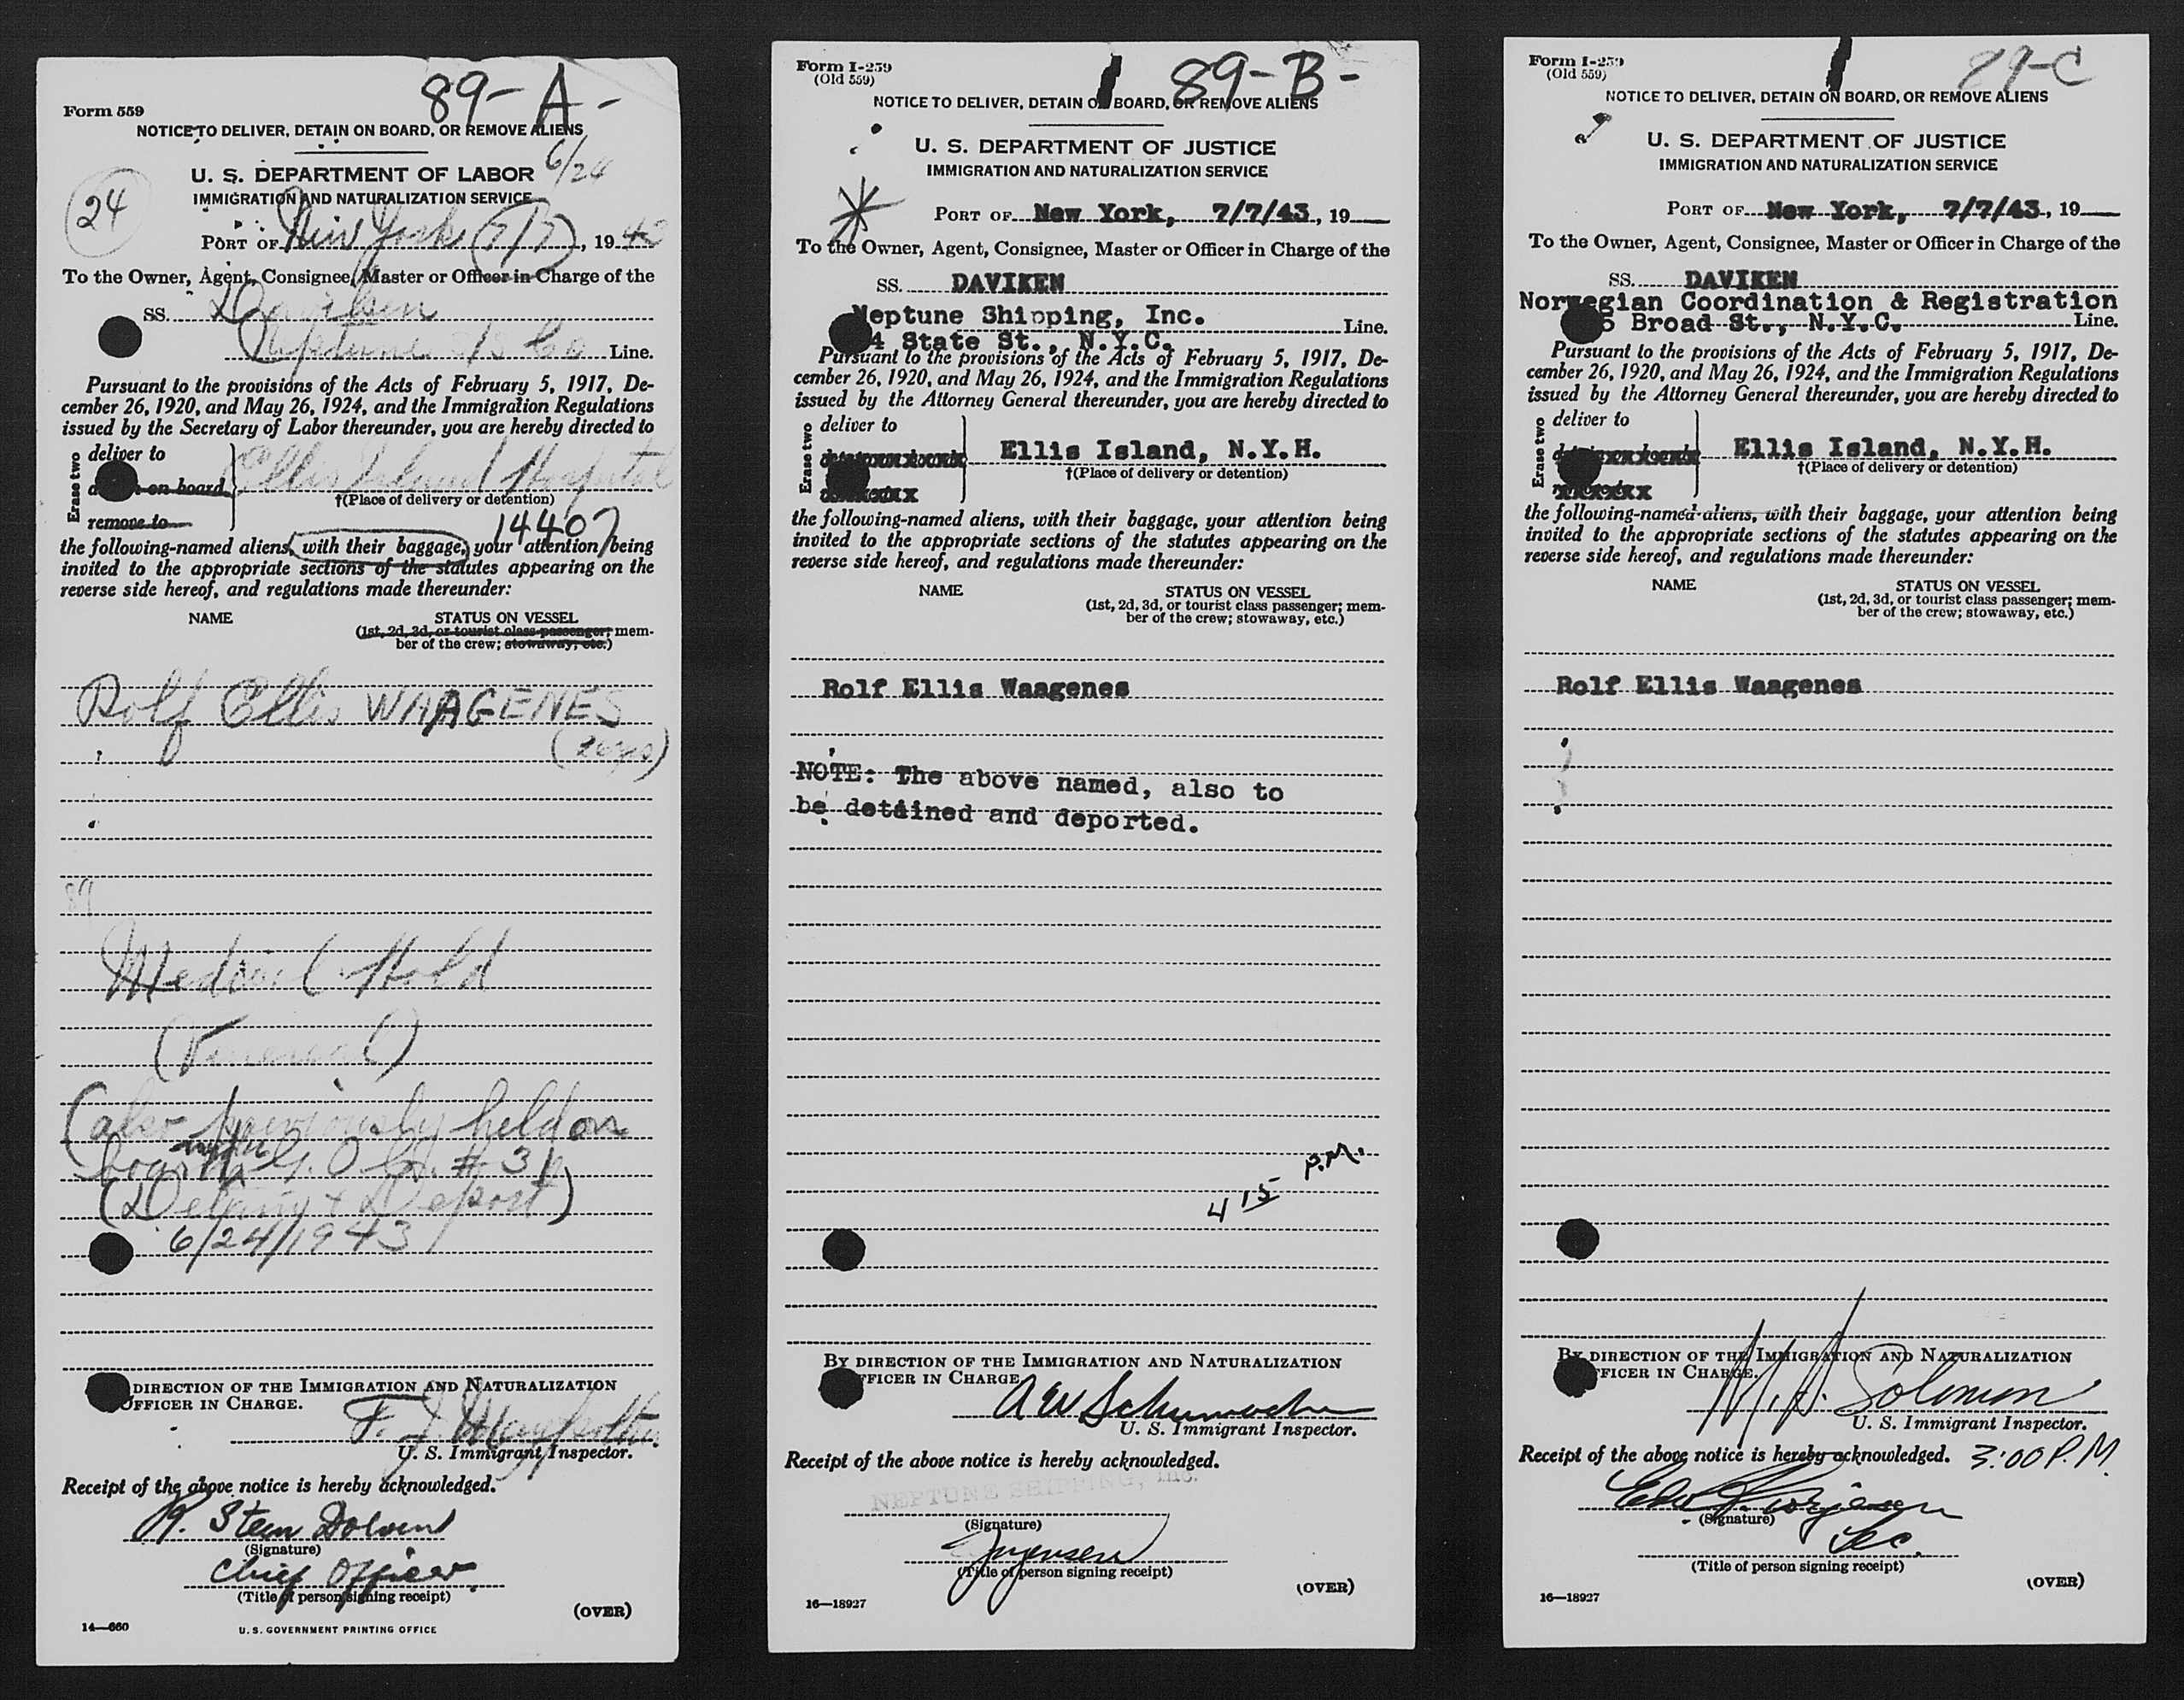 89-A-
Form 559
NOTICE TO DELIVER, DETAIN ON BOARD, OR REMOVE ALIENS
6/24
U. S. DEPARTMENT OF LABOR
IMMIGRATION AND NATURALIZATION SERVICE
24
PORT OF New York (7/7), 1943
To the Owner, Agent, Consignee, Master or Officer in Charge of the
SS. Daviken
Neptune S/S Co Line.
Pursuant to the provisions of the Acts of February 5, 1917, De-
cember 26, 1920, and May 26, 1924, and the Immigration Regulations
issued by the Secretary of Labor thereunder, you are hereby directed to
Erase two
deliver to
on board
remove to
Ellis Island Hospital
†(Place of delivery or detention)
14407
the following-named aliens, with their baggage, your attention being
invited to the appropriate sections of the statutes appearing on the
reverse side hereof, and regulations made thereunder:
NAME STATUS ON VESSEL
(1st, 2d, 3d, or tourist class passenger; mem-
ber of the crew; stowaway, etc.)
Rolf Ellis WAAGENES
89
Medical Hold
(Venereal)
(also previously held on
G.O. #31
(Detain & Deport)
6/24/1943
DIRECTION OF THE IMMIGRATION AND NATURALIZATION
OFFICER IN CHARGE.
F. J.
U. S. Immigrant Inspector.
Receipt of the above notice is hereby acknowledged.
R. Stem Dolven
(Signature)
Chief Officer
(Title of person signing receipt)
(OVER)
14—660
U. S. GOVERNMENT PRINTING OFFICE
Form I-259
(Old 559)
89-B-
NOTICE TO DELIVER, DETAIN ON BOARD, OR REMOVE ALIENS
U. S. DEPARTMENT OF JUSTICE
IMMIGRATION AND NATURALIZATION SERVICE
PORT OF New York, 7/7/43, 19
To the Owner, Agent, Consignee, Master or Officer in Charge of the
SS. DAVIKEN
Neptune Shipping, Inc. Line.
4 State St., N.Y.C.
Pursuant to the provisions of the Acts of February 5, 1917, De-
cember 26, 1920, and May 26, 1924, and the Immigration Regulations
issued by the Attorney General thereunder, you are hereby directed to
Erase two
deliver to
Ellis Island, N.Y.H.
†(Place of delivery or detention)
the following-named aliens, with their baggage, your attention being
invited to the appropriate sections of the statutes appearing on the
reverse side hereof, and regulations made thereunder:
NAME STATUS ON VESSEL
(1st, 2d, 3d, or tourist class passenger; mem-
ber of the crew; stowaway, etc.)
Rolf Ellis Waagenes
NOTE: The above named, also to
be detained and deported.
4 15 P.M.
BY DIRECTION OF THE IMMIGRATION AND NATURALIZATION
OFFICER IN CHARGE
A W Schumacher
U. S. Immigrant Inspector.
Receipt of the above notice is hereby acknowledged.
NEPTUNE SHIPPING, Inc.
(Signature)
Jorgensen
(Title of person signing receipt)
(OVER)
16—18927
Form I-259
(Old 559)
89-C
NOTICE TO DELIVER, DETAIN ON BOARD, OR REMOVE ALIENS
U. S. DEPARTMENT OF JUSTICE
IMMIGRATION AND NATURALIZATION SERVICE
PORT OF New York, 7/7/43, 19
To the Owner, Agent, Consignee, Master or Officer in Charge of the
SS. DAVIKEN
Norwegian Coordination & Registration
Broad St., N.Y.C. Line.
Pursuant to the provisions of the Acts of February 5, 1917, De-
cember 26, 1920, and May 26, 1924, and the Immigration Regulations
issued by the Attorney General thereunder, you are hereby directed to
Erase two
deliver to
Ellis Island, N.Y.H.
†(Place of delivery or detention)
the following-named aliens, with their baggage, your attention being
invited to the appropriate sections of the statutes appearing on the
reverse side hereof, and regulations made thereunder:
NAME STATUS ON VESSEL
(1st, 2d, 3d, or tourist class passenger; mem-
ber of the crew; stowaway, etc.)
Rolf Ellis Waagenes
BY DIRECTION OF THE IMMIGRATION AND NATURALIZATION
OFFICER IN CHARGE.
M. H. Solomon
U. S. Immigrant Inspector.
Receipt of the above notice is hereby acknowledged. 3:00 P.M.
(Signature)
Sec.
(Title of person signing receipt)
(OVER)
16—18927